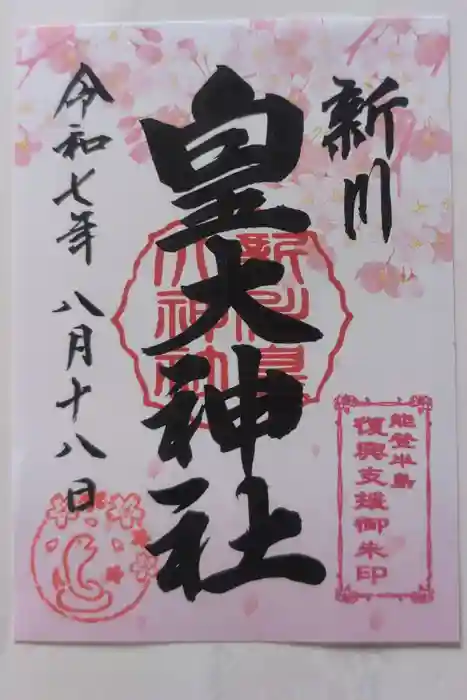 新川
皇大神社
令和七年 八月十八日
新川皇
大神社
能登半島
復興支援御朱印